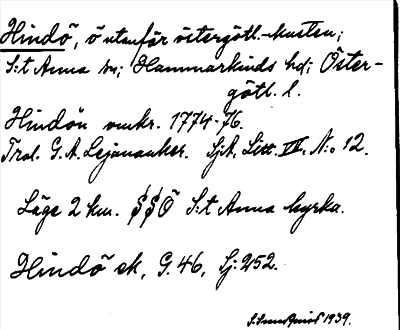 Hindö, ö utanför östergötl.-kusten;
S:t Anna sn; Hammarkinds hd; Öster-
götl. l.
Hindön omkr. 1774-76.
Trol. G. A. Lejonanker. SjA, Litt. VII, N:o 12.
Läge 2 km. SSÖ S:t Anna kyrka.
Hindö ek, G. 46, Sj: 252.
1939.